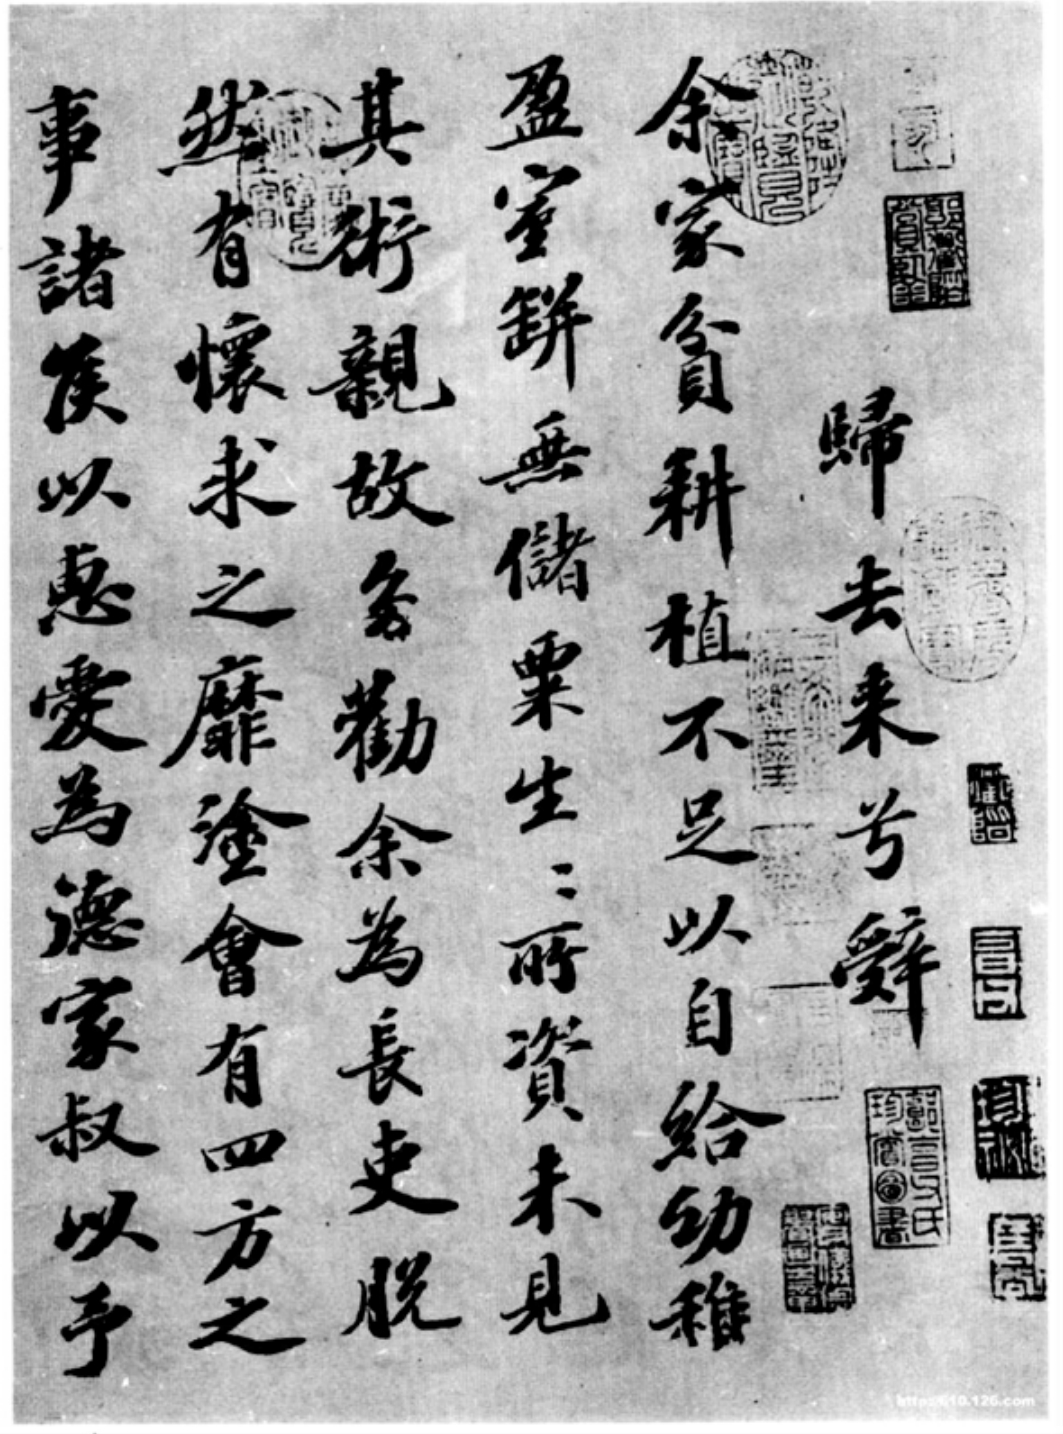 歸去来兮辭
余家貧耕植不足以自給幼稚
盈室缾無儲粟生〻所資未見
其術親故多勸余為長吏脱
然有懷求之靡塗會有四方之
事諸侯以惠愛為德家叔以予